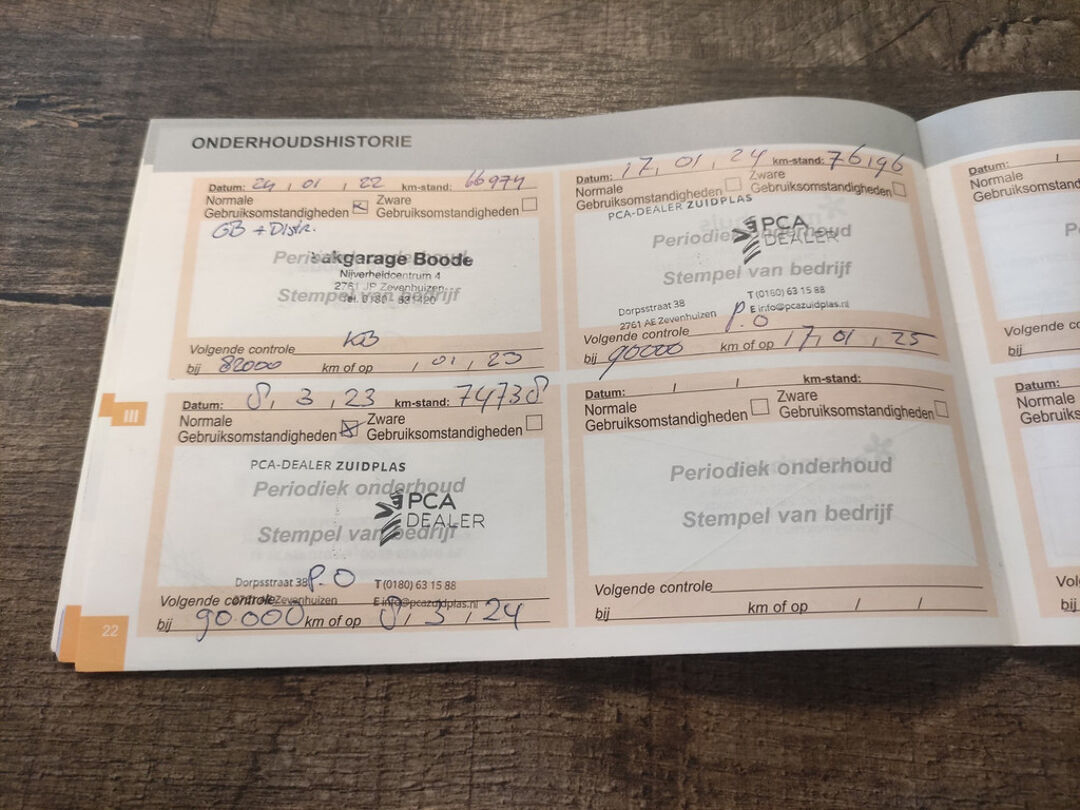 ONDERHOUDSHISTORIE
Datum: 24 , 01 , 22 km-stand: 66974
Normale
Gebruiksomstandigheden
Zware
Gebruiksomstandigheden
GB + Distr.
Periodiek onderhoud
Stempel van bedrijf
akgarage Boode
Nijverheidcentrum 4
2761 JP Zevenhuizen
Tel. 0180
KB
Volgende controle
bij 82000 km of op , 01 , 23
Datum: 8 , 3 , 23 km-stand: 74738
Normale
Gebruiksomstandigheden
Zware
Gebruiksomstandigheden
PCA-DEALER ZUIDPLAS
Periodiek onderhoud
PCA
DEALER
Stempel van bedrijf
Dorpsstraat 38 P.O T (0180) 63 15 88
Zevenhuizen E info@pcazuidplas.nl
Volgende controle
bij 90.000 km of op 8 , 3 , 24
III
22
Datum: 17 , 01 , 24 km-stand: 76196
Normale
Gebruiksomstandigheden
Zware
Gebruiksomstandigheden
PCA-DEALER ZUIDPLAS
Periodiek onderhoud
PCA
DEALER
Stempel van bedrijf
Dorpsstraat 38 T (0180) 63 15 88
2761 AE Zevenhuizen E info@pcazuidplas.nl
P.O
Volgende controle
bij 90000 km of op 17 , 01 , 25
Datum: / / km-stand:
Normale
Gebruiksomstandigheden
Zware
Gebruiksomstandigheden
Periodiek onderhoud
Stempel van bedrijf
Volgende controle
bij km of op / /
Datum: /
Normale
Gebruiksomstand
P
Volgende co
bij
Datum:
Normale
Gebruiks
Vol
bij